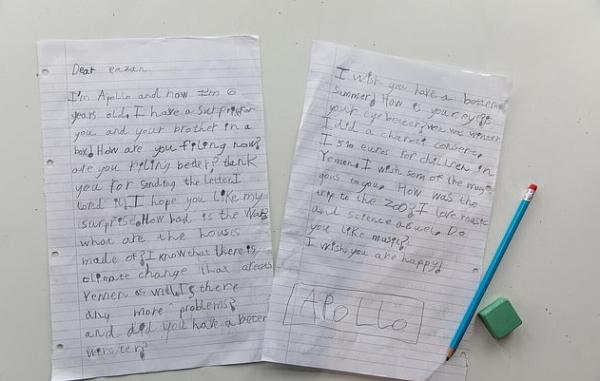 Dear eazan
I'm Apollo and now I'm 6
years old. I have a surprise for
you and your brother in a
box! How are you filing now?
are you filing beder? thenk
you for sending the letter I
loved it! I hope you like my
surprise. How bad is the War?
what are the houses
made of? I know that there is
climate change that afects
Yemen as well. Is there
any more problems?
and did you have a beter
winster?
I wish you have a
summer! How is your eye? is
your eye beter?
I did a charity concert.
I 510 euros for children in
Yemen. I wish som of the muny
gous to you. How was the
trip to the zoo? I love music
and science aswel. Do
you like music?
I wish you are happy!
APOLLO